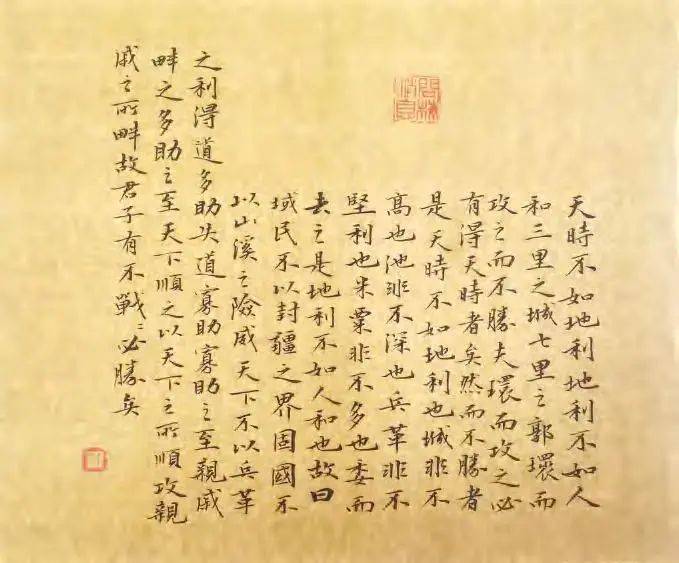 天時不如地利地利不如人
和三里之城七里之郭環而
攻之而不勝夫環而攻之必
有得天時者矣然而不勝者
是天時不如地利也城非不
高也池非不深也兵革非不
堅利也米粟非不多也委而
去之是地利不如人和也故曰
域民不以封疆之界固國不
以山溪之險威天下不以兵革
之利得道多助失道寡助寡助之至親戚
畔之多助之至天下順之以天下之所順攻親
戚之所畔故君子有不戰〻必勝矣